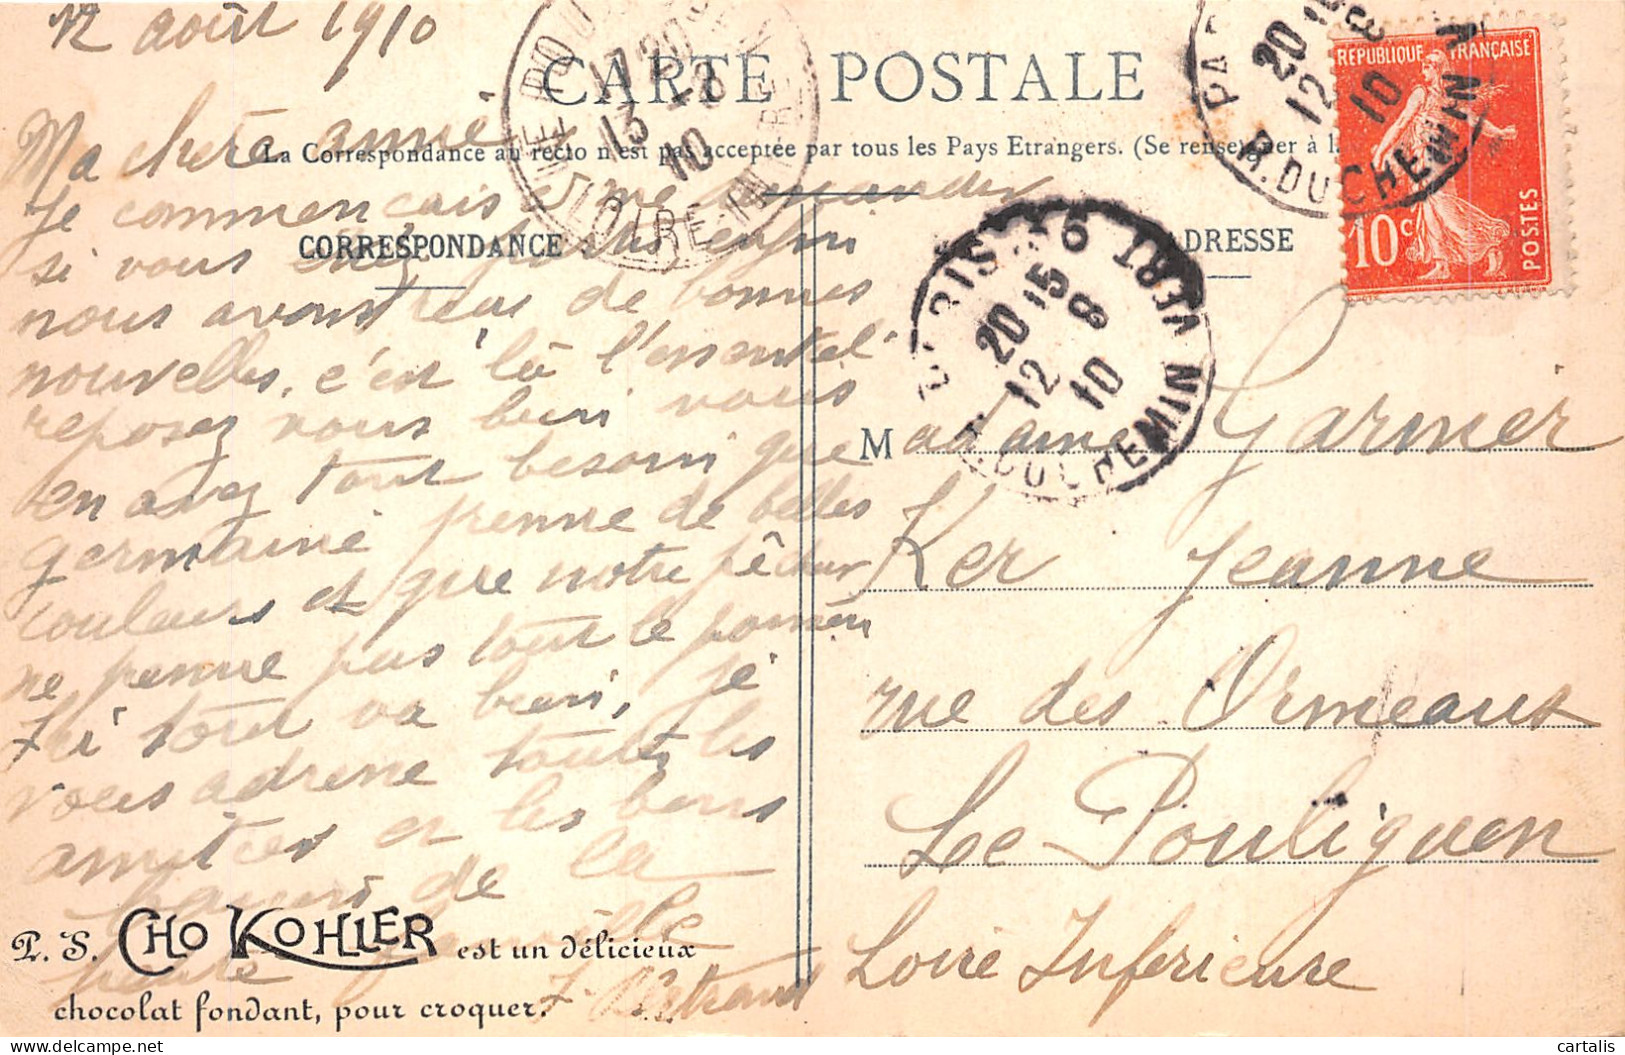 12 août 1910
CARTE POSTALE
La Correspondance au recto n'est pas acceptée par tous les Pays Etrangers. (Se renseigner à la
CORRESPONDANCE
ADRESSE
REPUBLIQUE FRANÇAISE
10c POSTES
PARIS
20 15
12 8
10
R. DU CHEMIN VERT
17 20
13 - 8
10
LOIRE-INFRE
Ma chère amie,
Je commencais à me demander
si vous étiez perdus enfin
nous avons reçu de bonnes
nouvelles, c'est là l'essentiel.
reposez vous bien vous
en avez tout besoin que
germaine prenne de belles
couleurs et que notre pêcheur
ne prenne pas tout le poisson
Ici tout va bien, je
vous adresse toutes les
amitiés et les bons
baisers de la
petite famille
J. Bertrand
P. S. CHO KOHLER est un délicieux
chocolat fondant, pour croquer.
Madame Garnier
Ker Jeanne
rue des Ormeaux
Le Pouliguen
Loire Inférieure
cartalis
delcampe.net